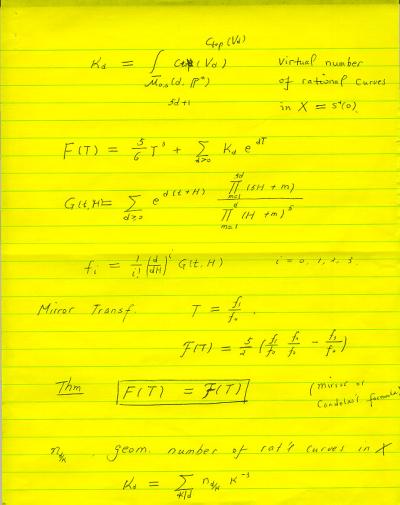 C_top(V_d)
K_d = ∫ (V_d) Virtual number
M̄_0,0(d, P⁴) of rational curves
5d+1 in X = s⁻¹(0).
F(T) = 5/6 T³ + Σ_{d>0} K_d e^{dT}
G(t,H) = Σ_{d≥0} e^{d(t+H)} ∏_{m=1}^{5d} (5H + m) / ∏_{m=1}^{d} (H + m)⁵
f_i = 1/i! (d/dH)^i G(t,H) i = 0, 1, 2, 3.
Mirror Transf. T = f_1/f_0 .
𝓕(T) = 5/2 (f_1/f_0 f_2/f_0 − f_3/f_0)
Thm F(T) = 𝓕(T) (mirror or
Candelas's formula)
n_{d/k} . geom. number of rat'l curves in X
K_d = Σ_{k|d} n_{d/k} k⁻³